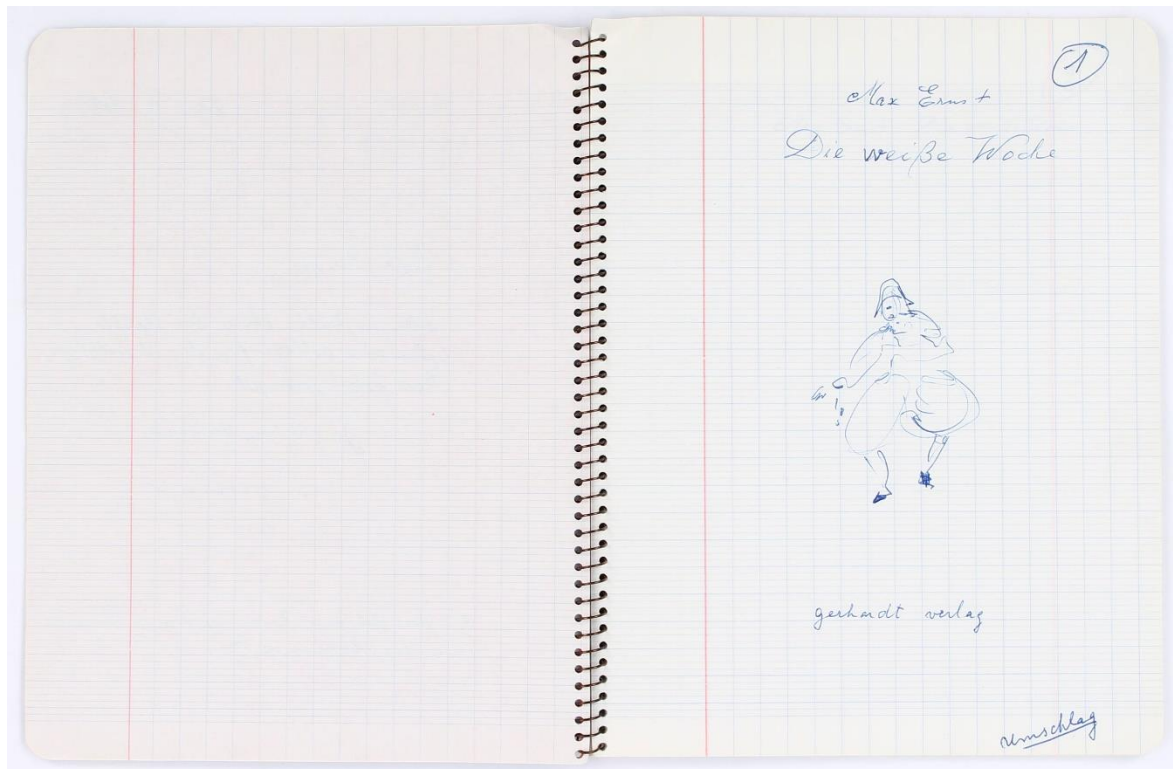 1
Max Ernst
Die weiße Woche
gerhardt verlag
Umschlag